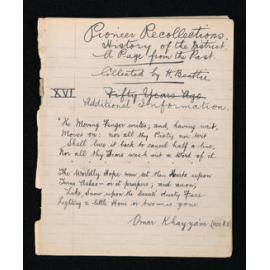 Pioneer Recollections.
History of the District.
A Page from the Past
Collected by H. Beattie
XVI
Fifty Years Ago.
Additional Information.
"The Moving Finger writes; and, having writ,
Moves on: nor all thy Piety nor Wit
Shall lure it back to cancel half a Line,
Nor all thy Tears wash out a Word of it.
The Worldly Hope men set their Hearts upon
Turns Ashes - or it prospers; and anon,
Like Snow upon the Desert's dusty Face
Lighting a little Hour or two - was gone
Omar Khayyám